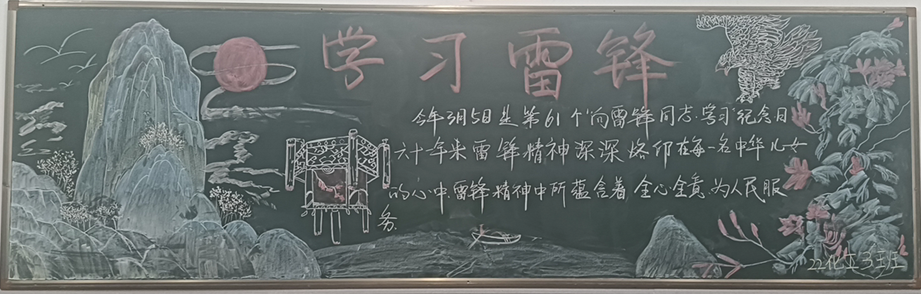 学习雷锋
今年3月5日是第61个向雷锋同志学习纪念日
六十年来雷锋精神深深烙印在每一名中华儿女
的心中雷锋精神中所蕴含着全心全意为人民服
务.